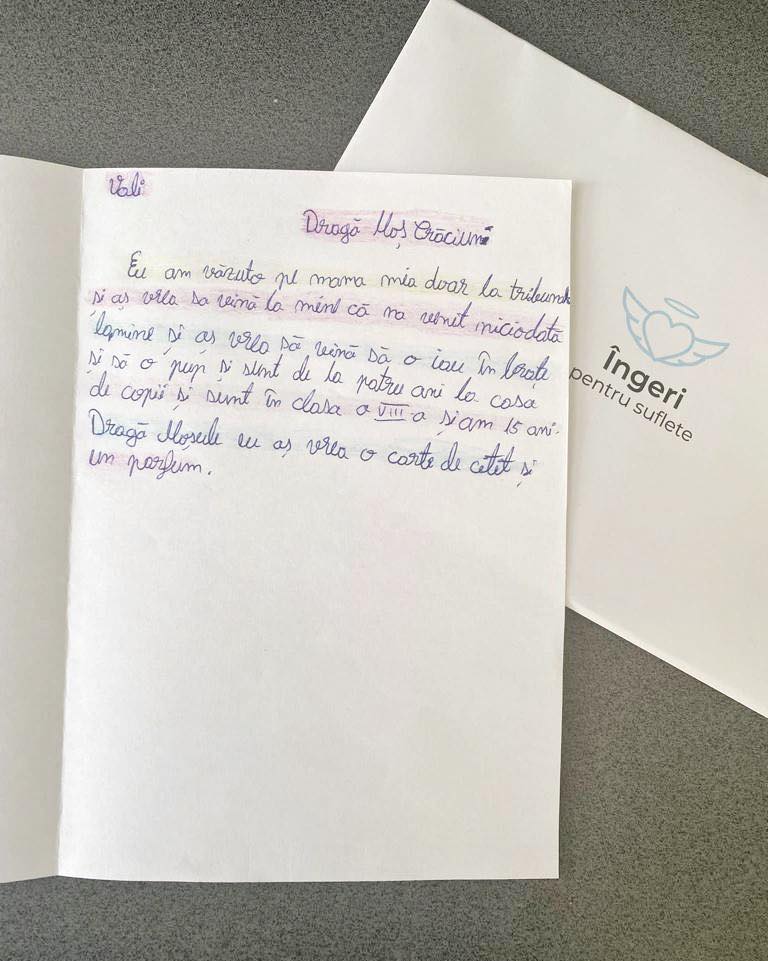 Vali
Dragă Moș Crăciun
Eu am văzuto pe mama mia doar la tribunal
și aș vrea sa vină la mine că na venit niciodata
lamine și aș vrea să vină să o iau în brațe
și să o pup și sunt de la patru ani la casa
de copii și sunt în clasa a VIII a și am 15 ani.
Dragă Moșule eu aș vrea o carte de citit și
un parfum.
Îngeri
pentru suflete